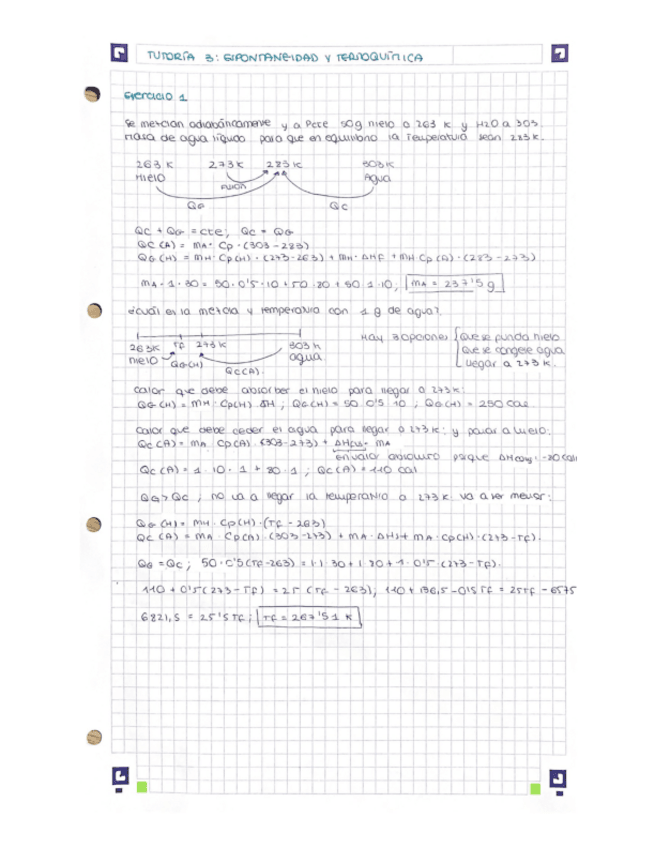 TUTORÍA 3: ESPONTANEIDAD Y TERMOQUÍMICA
Ejercicio 1
Se mezclan adiabáticamente y a Pcte 50g hielo a 263 K y H2O a 303.
Masa de agua líquida para que en equilibrio la temperatura sean 283K.
263 K 273 K 283 K 303K
Hielo Fusión Agua
QG QC
QC + QG = cte; QC = QG
QC (A) = MA · Cp · (303 - 283)
QG (H) = MH · Cp(H) · (273-263) + MH · ΔHF + MH Cp (A) · (283 - 273)
MA · 1 · 30 = 50 · 0'5 · 10 + 50 · 20 + 50 · 1 · 10; MA = 237'5 g
¿Cuál es la mezcla y temperatura con 1 g de agua?
Hay 3 opciones Que se funda hielo
263K TF 273K 303 K Que se congele agua
hielo QG(H) agua. Llegar a 273 K.
QC(A).
Calor que debe absorber el hielo para llegar a 273 K:
QG (H) = MH · Cp(H) ΔH ; QG(H) = 50 · 0'5 · 10 ; QG(H) = 250 cal.
Calor que debe ceder el agua para llegar a 273 K: y pasar a hielo:
QC (A) = MA Cp(A) · (303-273) + ΔHfus · MA
en valor absoluto porque ΔHcong: -80 cal
QC (A) = 1 · 10 · 1 + 80 · 1 ; QC (A) = 110 cal
QG > QC ; no va a llegar la temperatura a 273 K va a ser menor:
QG (H) = MH · Cp(H) · (TF - 263)
QC (A) = MA · Cp(A) · (303-273) + MA · ΔHf + MA · Cp(H) · (273-TF).
QG = QC ; 50 · 0'5(TF-263) = 1·1·30 + 1·80 + 1·0'5 · (273-TF).
110 + 0'5(273-TF) = 25 (TF - 263); 110 + 136,5 - 0'5 TF = 25TF - 6575
6821,5 = 25'5 TF ; TF = 267'51 K